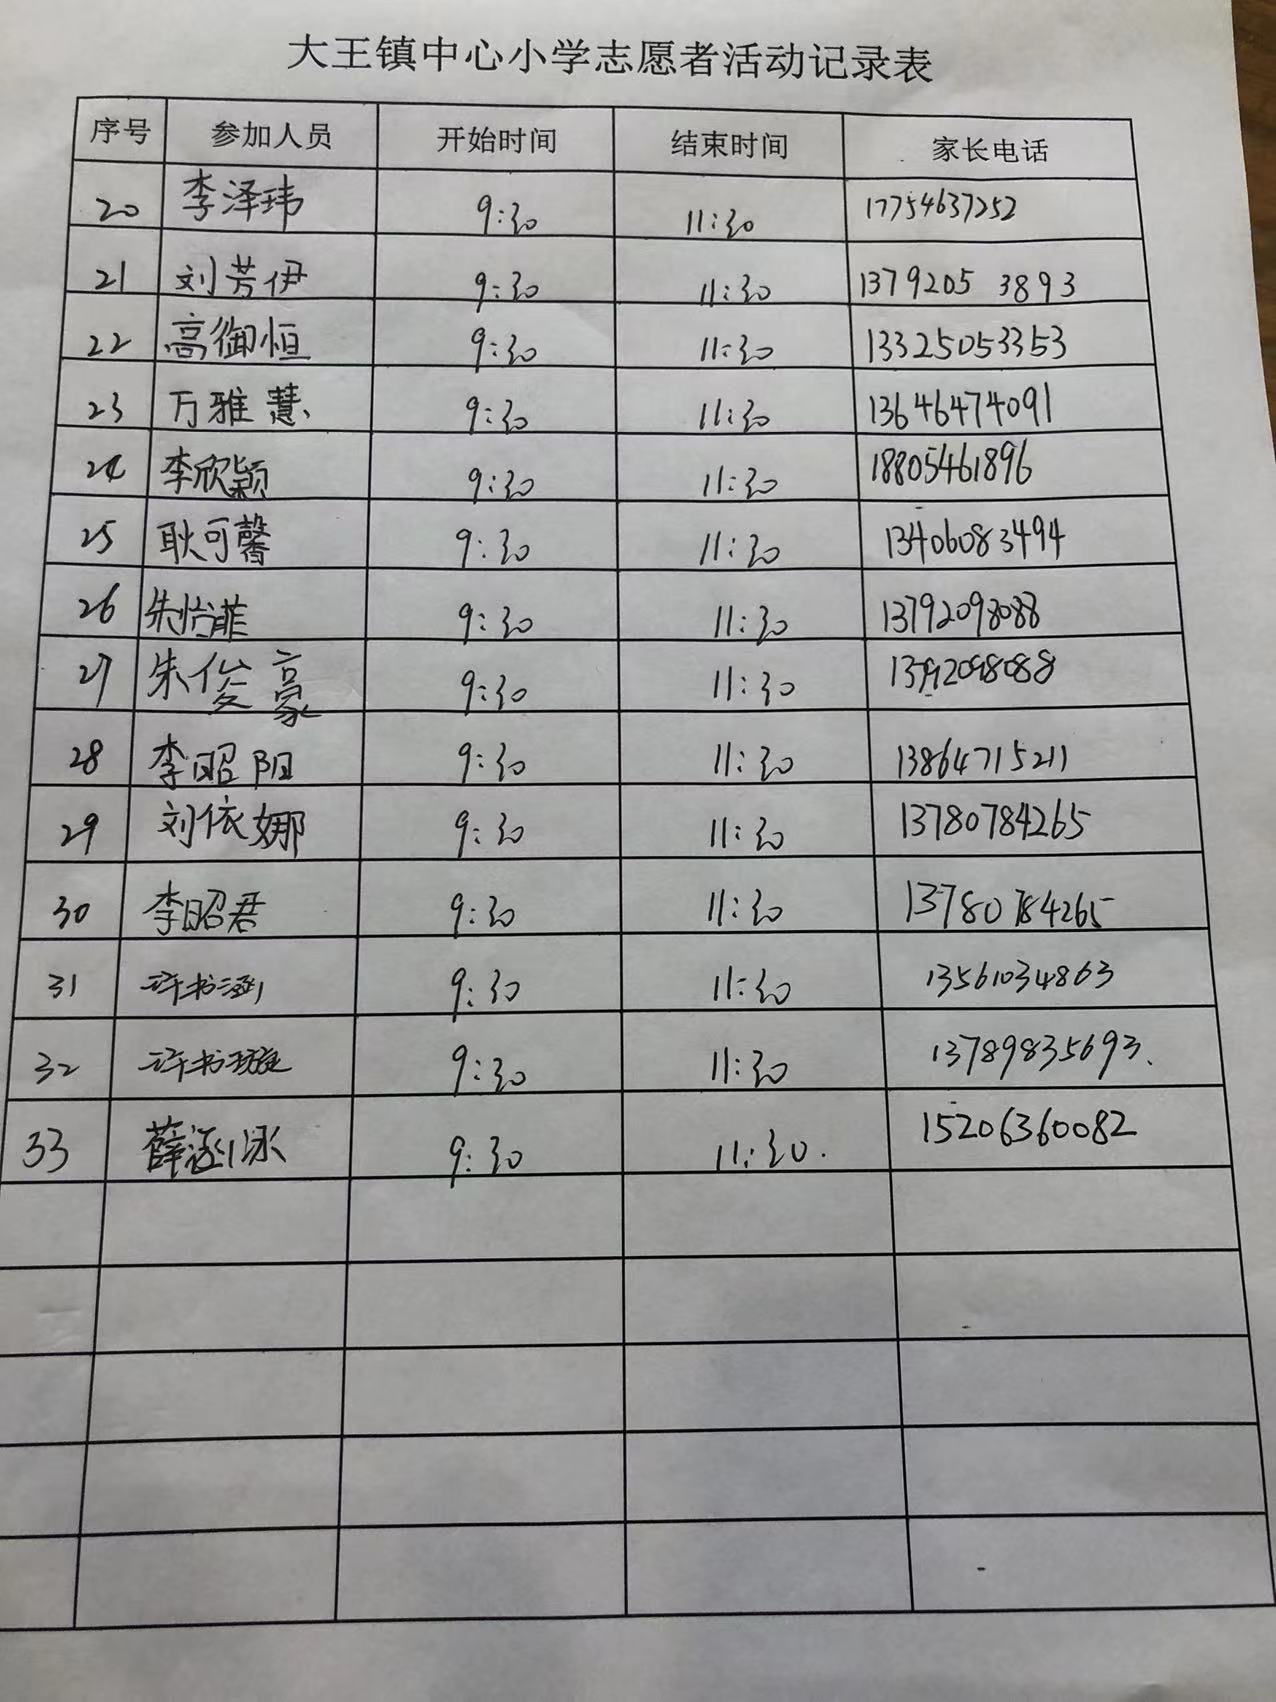 大王镇中心小学志愿者活动记录表
序号 参加人员 开始时间 结束时间 家长电话
20 李泽玮 9:30 11:30 17754637252
21 刘芳伊 9:30 11:30 1379205 3893
22 高御恒 9:30 11:30 13325053353
23 万雅慧 9:30 11:30 13646474091
24 李欣颖 9:30 11:30 18805461896
25 耿可馨 9:30 11:30 13406083494
26 朱怡菲 9:30 11:30 13792098088
27 朱俊豪 9:30 11:30 13792098088
28 李昭阳 9:30 11:30 13864715211
29 刘依娜 9:30 11:30 13780784265
30 李昭君 9:30 11:30 13780784265
31 许书涵 9:30 11:30 13561034863
32 许书璇 9:30 11:30 13789835693.
33 薛涵泳 9:30 11:30. 15206360082